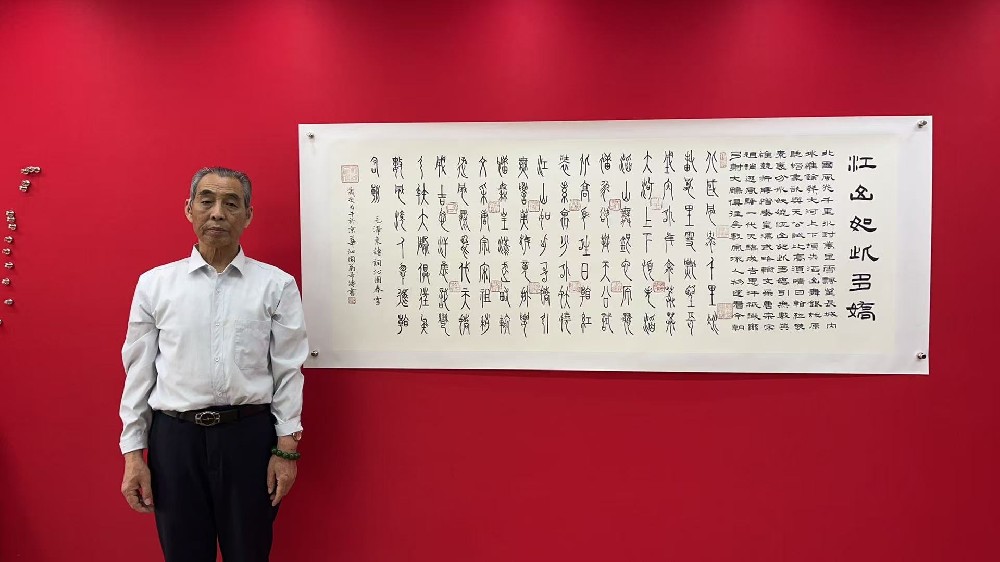 江山如此多嬌
北國風光千里冰封萬里雪飄望長城內
外惟餘莽莽大河上下頓失滔滔山舞銀蛇原
馳蠟象欲與天公試比高須晴日看紅裝
素裹分外妖嬈江山如此多嬌引無數英
雄競折腰惜秦皇漢武略輸文采唐宗宋
祖稍遜風騷一代天驕成吉思汗祇識彎
弓射大鵰俱往矣數風流人物還看今朝
北國風光千里冰
封萬里雪飄望長
城內外惟餘莽莽
大河上下頓失滔
滔山舞銀蛇原馳
蠟象欲與天公試
比高須晴日看紅
裝素裹分外妖嬈
江山如此多嬌引
無數英雄競折腰
惜秦皇漢武略輸
文采唐宗宋祖稍
遜風騷一代天驕
成吉思汗祇識彎
弓射大鵰俱往矣
數風流人物還看
今朝
毛澤東詩詞沁園春雪
歲次年於京華沁園書